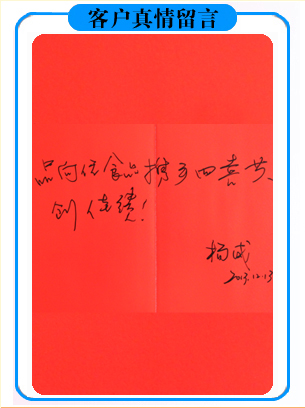 客户真情留言
品向佳食品携手四喜共
创佳绩!
杨成
2013.12.13